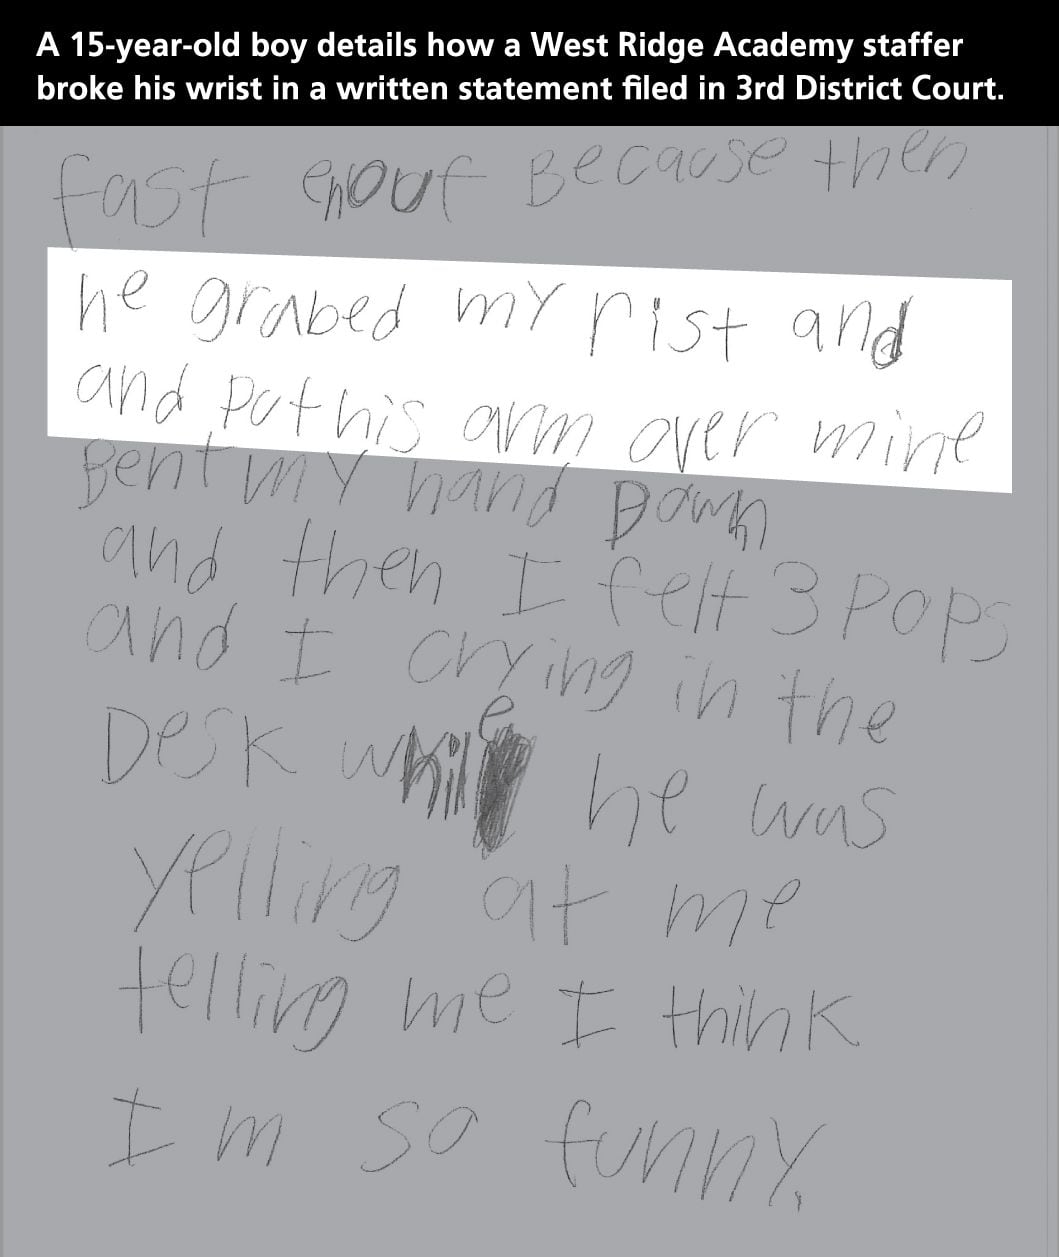 A 15-year-old boy details how a West Ridge Academy staffer
broke his wrist in a written statement filed in 3rd District Court.
fast enouf Because then
he grabed my rist and
and put his arm over mine
Bent my hand Down
and then I felt 3 Pops
and I crying in the
Desk while he was
yelling at me
telling me I think
I m so funny.